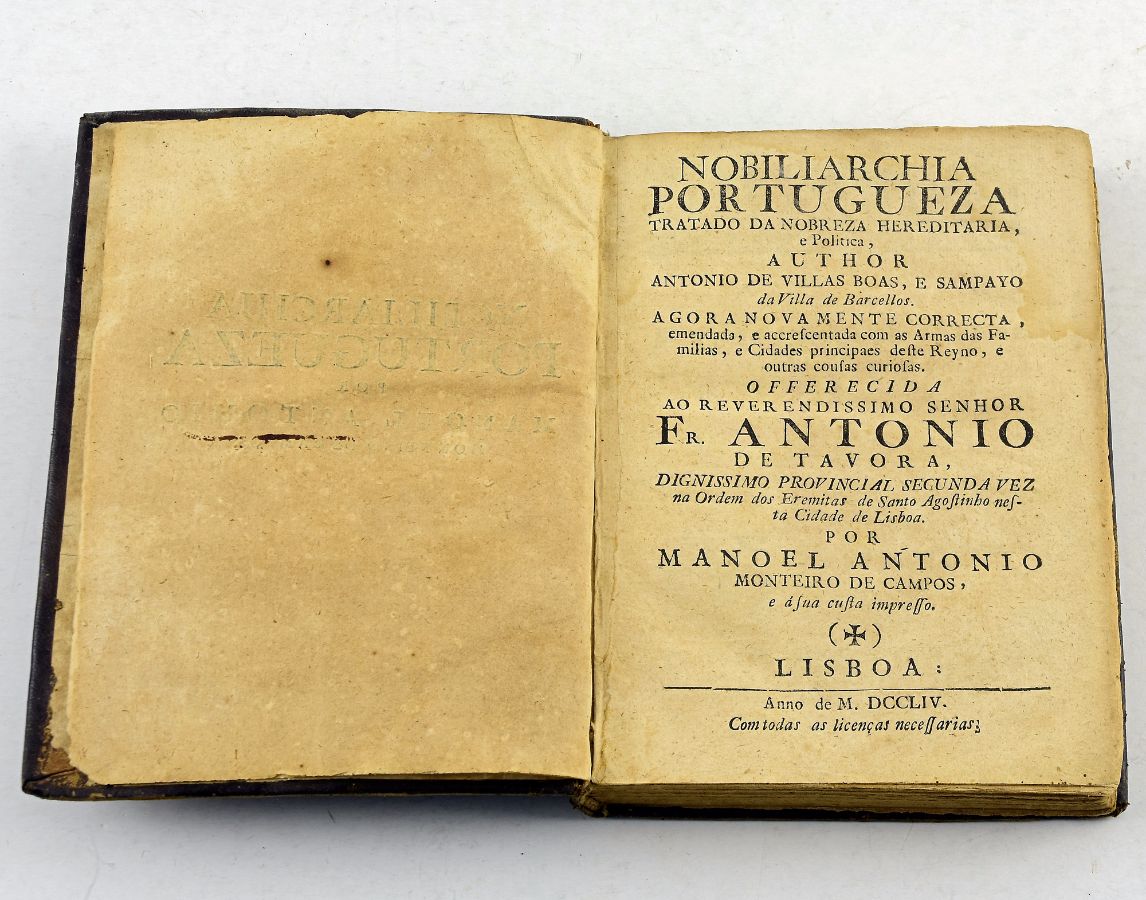 NOBILIARCHIA
PORTUGUEZA
TRATADO DA NOBREZA HEREDITARIA,
e Politica,
AUTHOR
ANTONIO DE VILLAS BOAS, E SAMPAYO
da Villa de Barcellos.
AGORA NOVAMENTE CORRECTA,
emendada, e accreſcentada com as Armas das Fa-
milias, e Cidades principaes deſte Reyno, e
outras couſas curioſas.
OFFERECIDA
AO REVERENDISSIMO SENHOR
FR. ANTONIO
DE TAVORA,
DIGNISSIMO PROVINCIAL SECUNDA VEZ
na Ordem dos Eremitas de Santo Agoſtinho neſ-
ta Cidade de Lisboa.
POR
MANOEL ANTONIO
MONTEIRO DE CAMPOS,
e á ſua cuſta impreſſo.
(✠)
LISBOA:
Anno de M. DCCLIV.
Com todas as licenças neceſſarias;